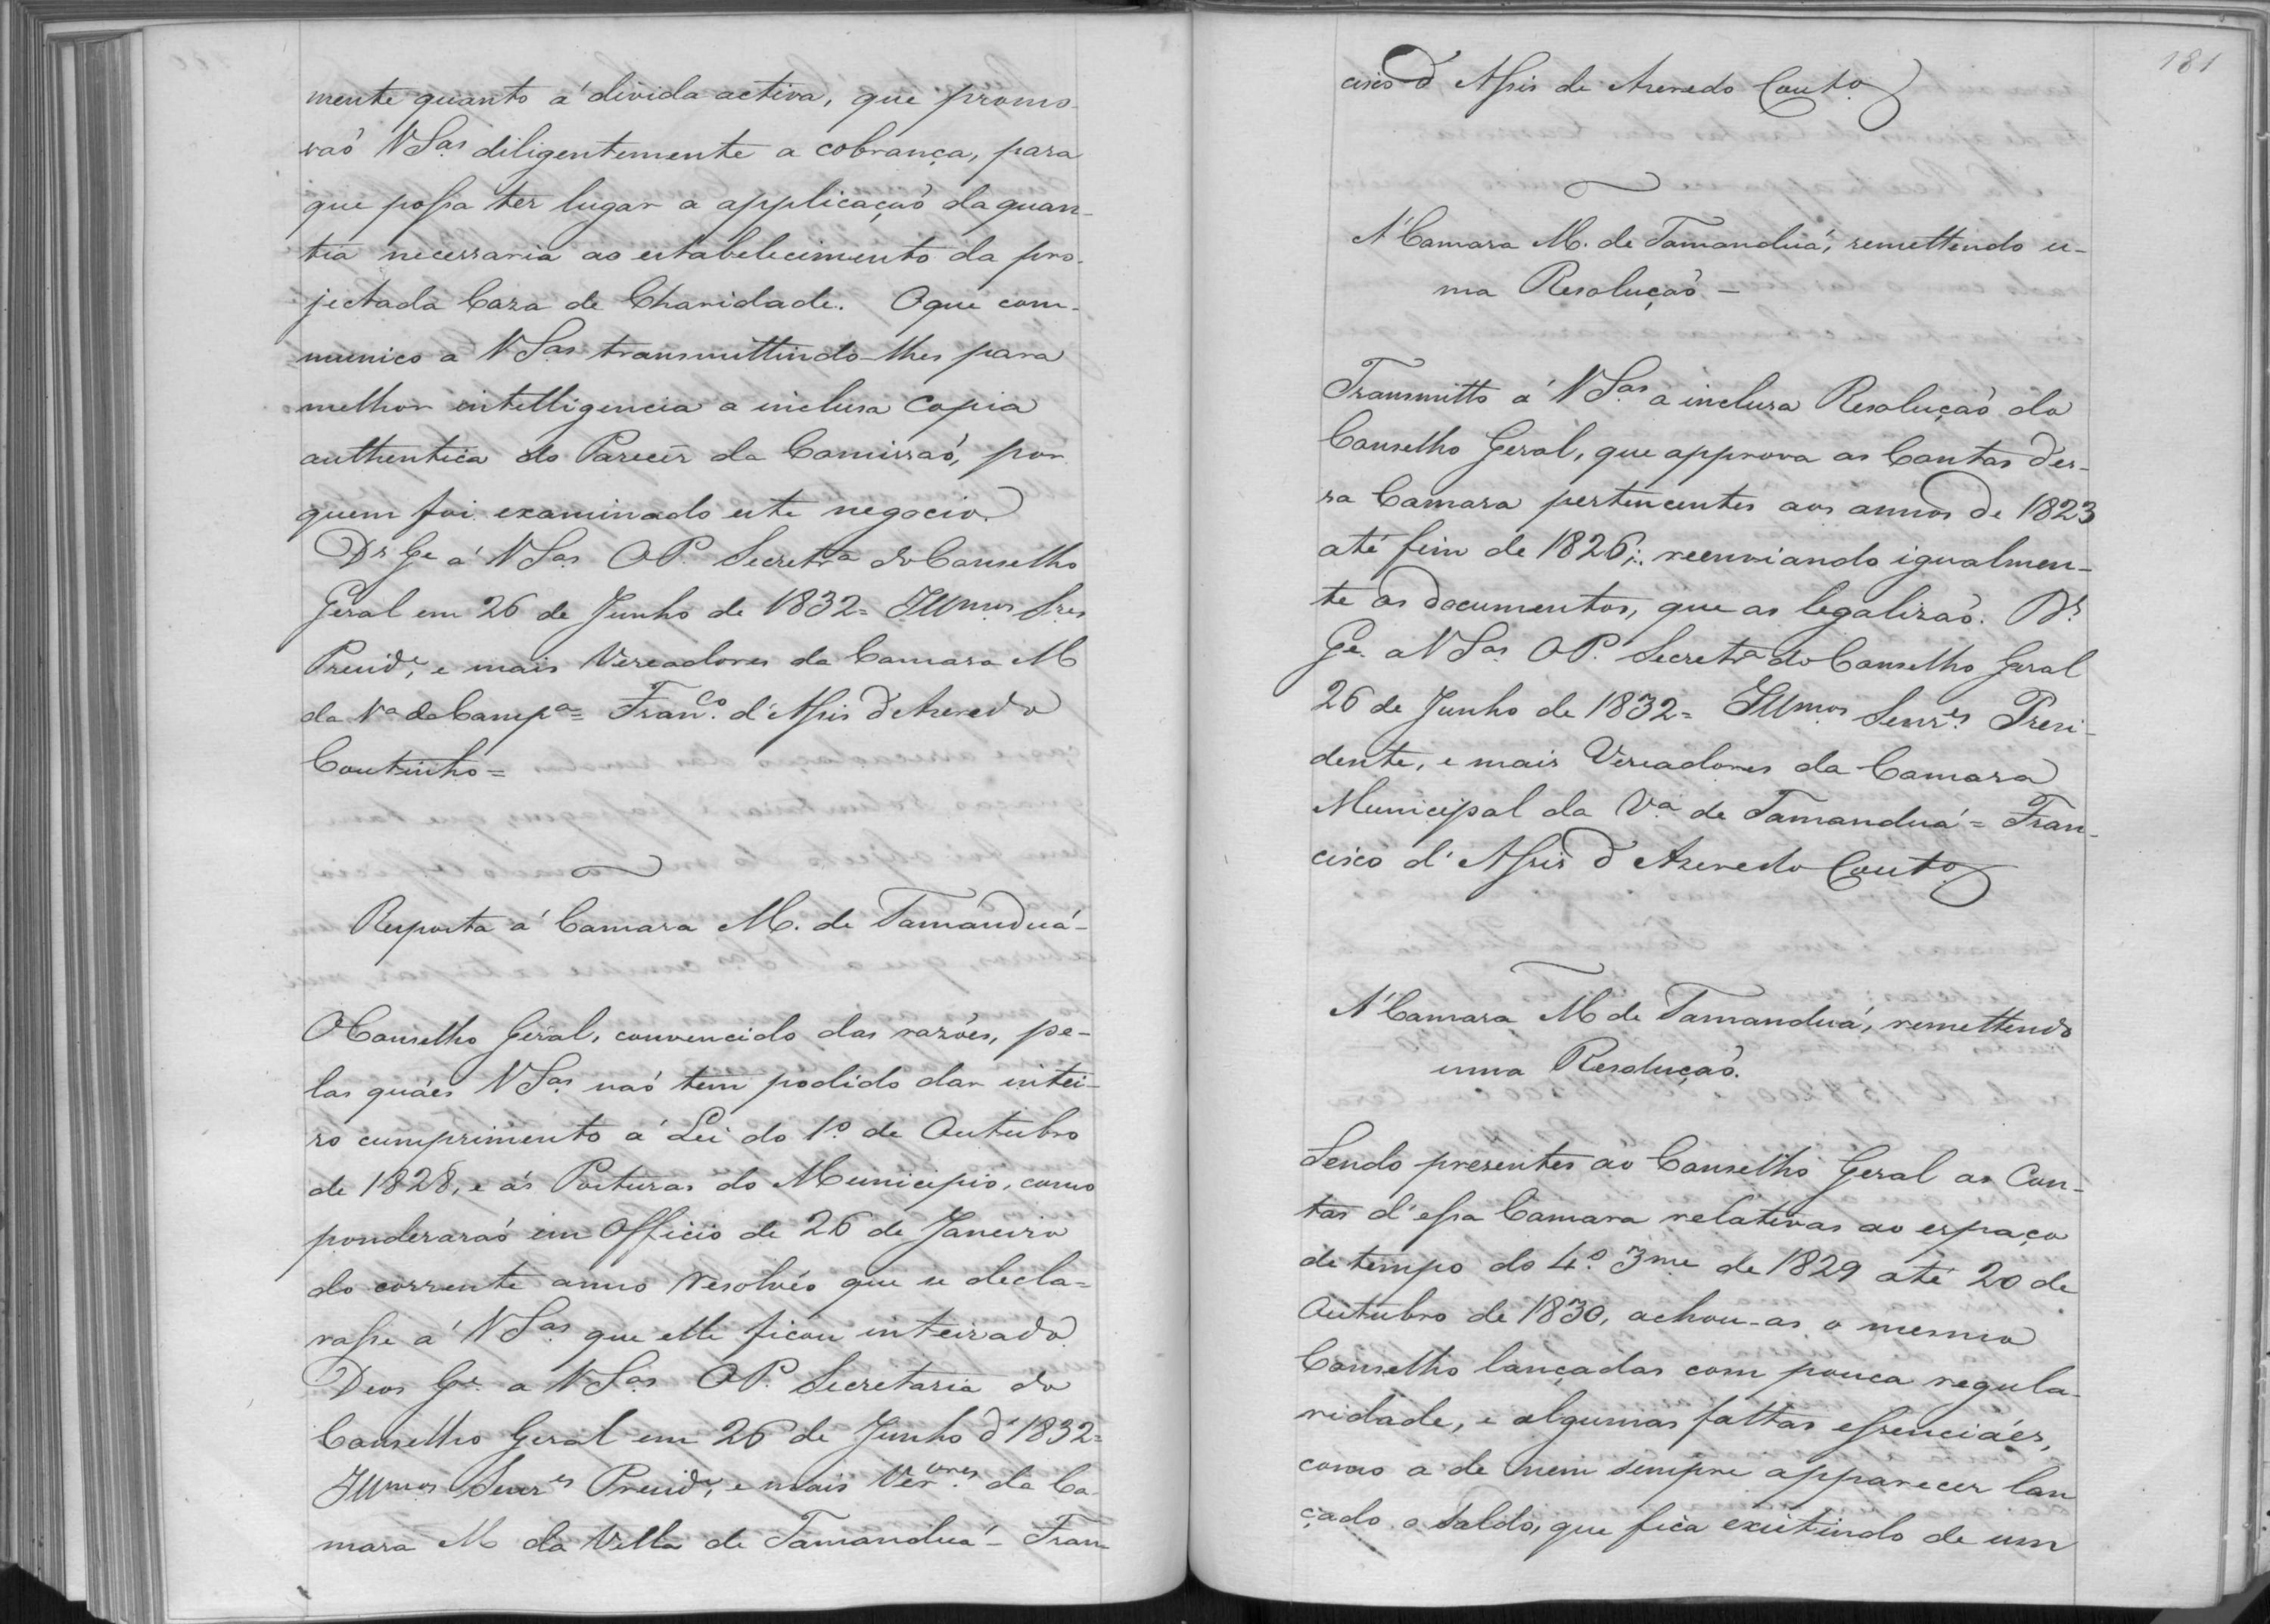 mente quanto á divida activa, que promo-
vaõ VSas. diligentemente a cobrança, para
que possa ter lugar a applicaçaõ da quan-
tia necessaria ao estabelecimento da pro-
jectada Caza de Charidade. O que com-
munico a VSas. transmittindo-lhes para
melhor intelligencia a inclusa Copia
authentica do Parecer da Comissaõ, por
quem foi examinado este negocio.
Ds. Ge. á VSas. OP. Secretra do Conselho
Geral em 26 de Junho de 1832= Illmos. Sres
Preside., e mais Vereadores da Camara M
da Va da Campa= Franco. d'Assis d'Azeredo
Coutinho=
Resposta á Camara M. de Tamanduá-
O Conselho Geral, convencido das razões, pe-
las quáes VSas. naõ tem podido dar intei-
ro cumprimento á Lei do 1o. de Outubro
de 1828, e ás Posturas do Municipio, como
ponderaraõ em Officio de 26 de Janeiro
do corrente anno resolvéo que se decla-
rasse á VSas. que elle ficou inteirado.
Deos Ge. a VSas. OP. Secretaria do
Conselho Geral em 26 de Junho d'1832=
Illmos. Senres Preside., e mais Verores. da Ca-
mara M da Villa de Tamanduá- Fran-
181
cisco d'Assis de Azeredo Couto.
A' Camara M. de Tamanduá, remettendo u-
ma Resoluçaõ -
Transmitto á VSas. a inclusa Resoluçaõ do
Conselho Geral, que approva as Contas des-
sa Camara pertencentes aos annos de 1823
até fim de 1826; reenviando igualmen-
te os documentos, que as legalisaõ. Ds.
Ge. a VSas. OP. Secretra do Conselho Geral
26 de Junho de 1832= Illmos Senres. Presi-
dente, e mais Vereadores da Camara
Municipal da Va. de Tamanduá= Fran-
cisco d'Assis d'Azeredo Couto.
A' Camara M de Tamanduá, remettendo
uma Resoluçaõ.
Sendo presentes ao Conselho Geral as Con-
tas d'essa Camara relativas ao espaço
de tempo do 4o. 3me de 1829 até 20 de
Outubro de 1830, achou-as o mesmo
Conselho lançadas com pouca regula-
ridade, e algumas faltas essenciáes,
como a de nem sempre apparecer lan
çado o Saldo, que fica existindo de um